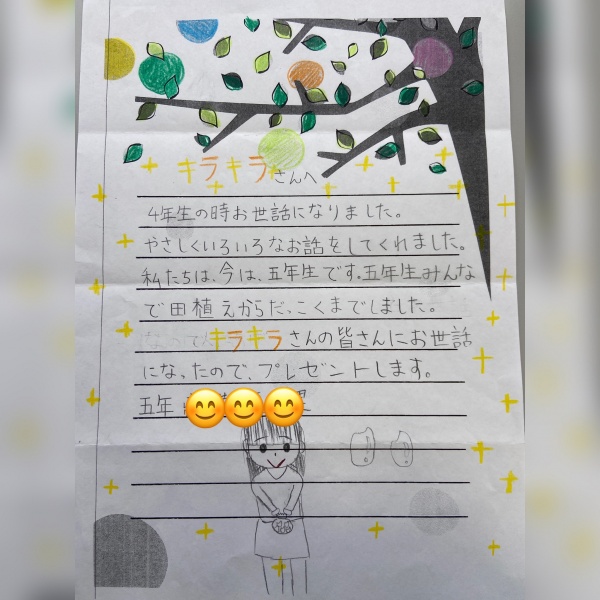 キラキラさんへ
4年生の時お世話になりました。
やさしくいろいろなお話をしてくれました。
私たちは、今は、五年生です。五年生みんな
で田植えからだっこくまでしました。
キラキラさんの皆さんにお世話
になったので、プレゼントします。
五年